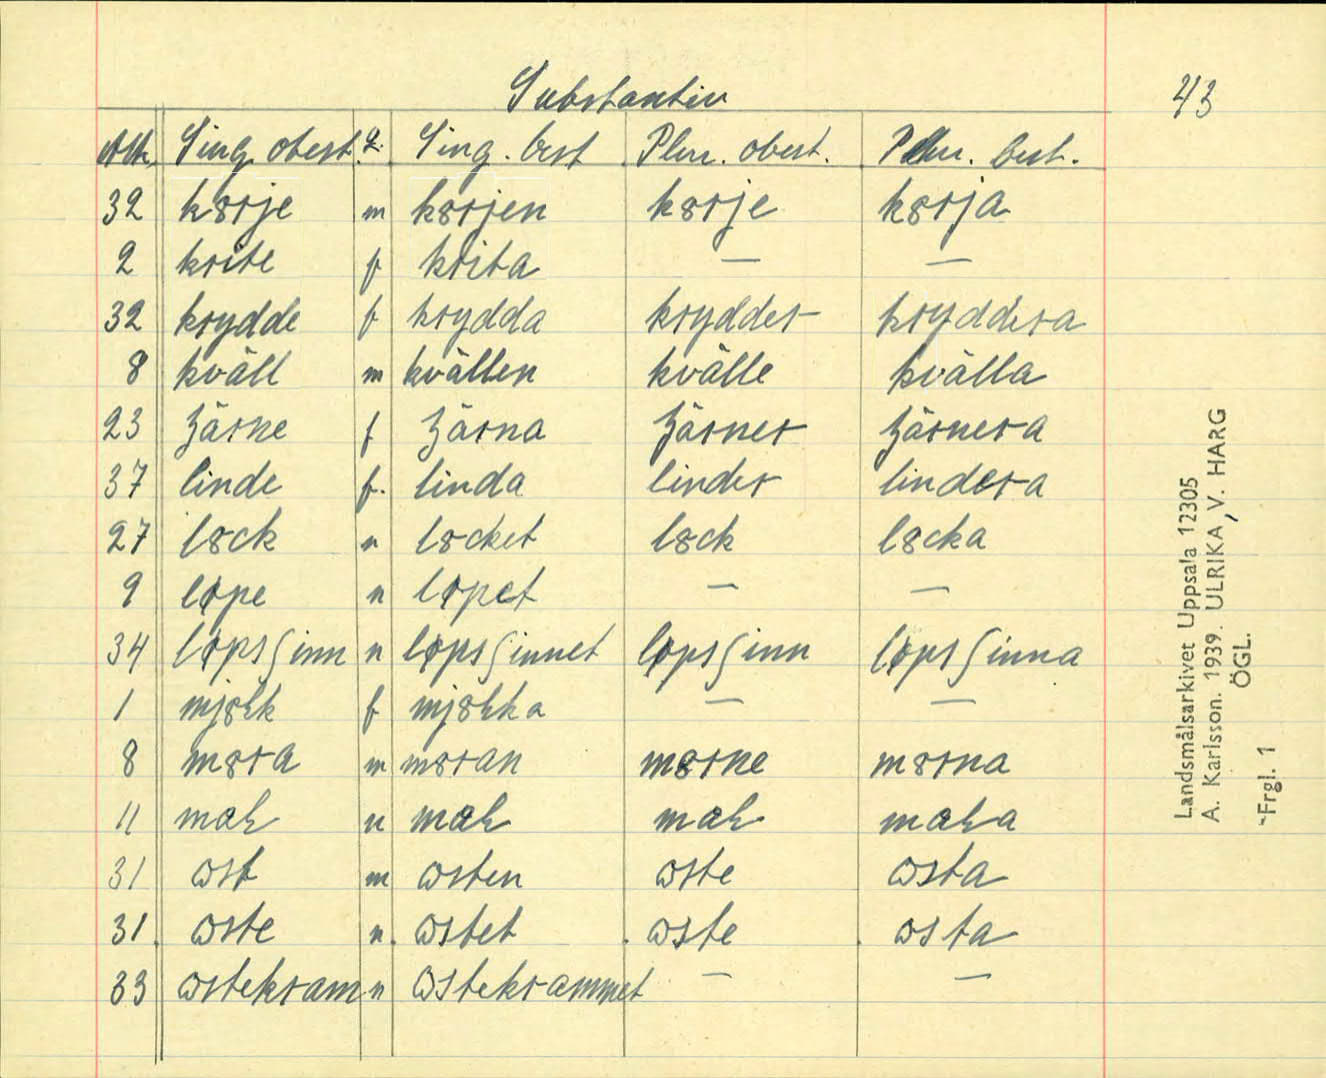 Substantiv 43
Atk. Sing. obest. g. Sing. best Plur. obest. Plur. best.
32 k8rje m k8rjen k8rje k8rja
2 krite f krita — —
32 krydde f krydda krydder kryddera
8 kväll m kvällen kvälle kvälla
23 f
37 linde f. linda linder lindera
27 l8ck n l8cket l8ck l8cka
9 løpe n løpet — —
34 løpsʃinn n løpsʃinnet løpsʃinn løpsʃinna
1 f — —
8 m8ra m m8ran m8rne m8rna
11 n
31 ωst m ωsten ωste ωsta
31. ωste n. ωstet ωste ωsta
33 ωstekram n ωstekrammet — —
Landsmålsarkivet Uppsala 12305
A. Karlsson. 1939. ULRIKA, V. HARG
ÖGL.
-Frgl. 1